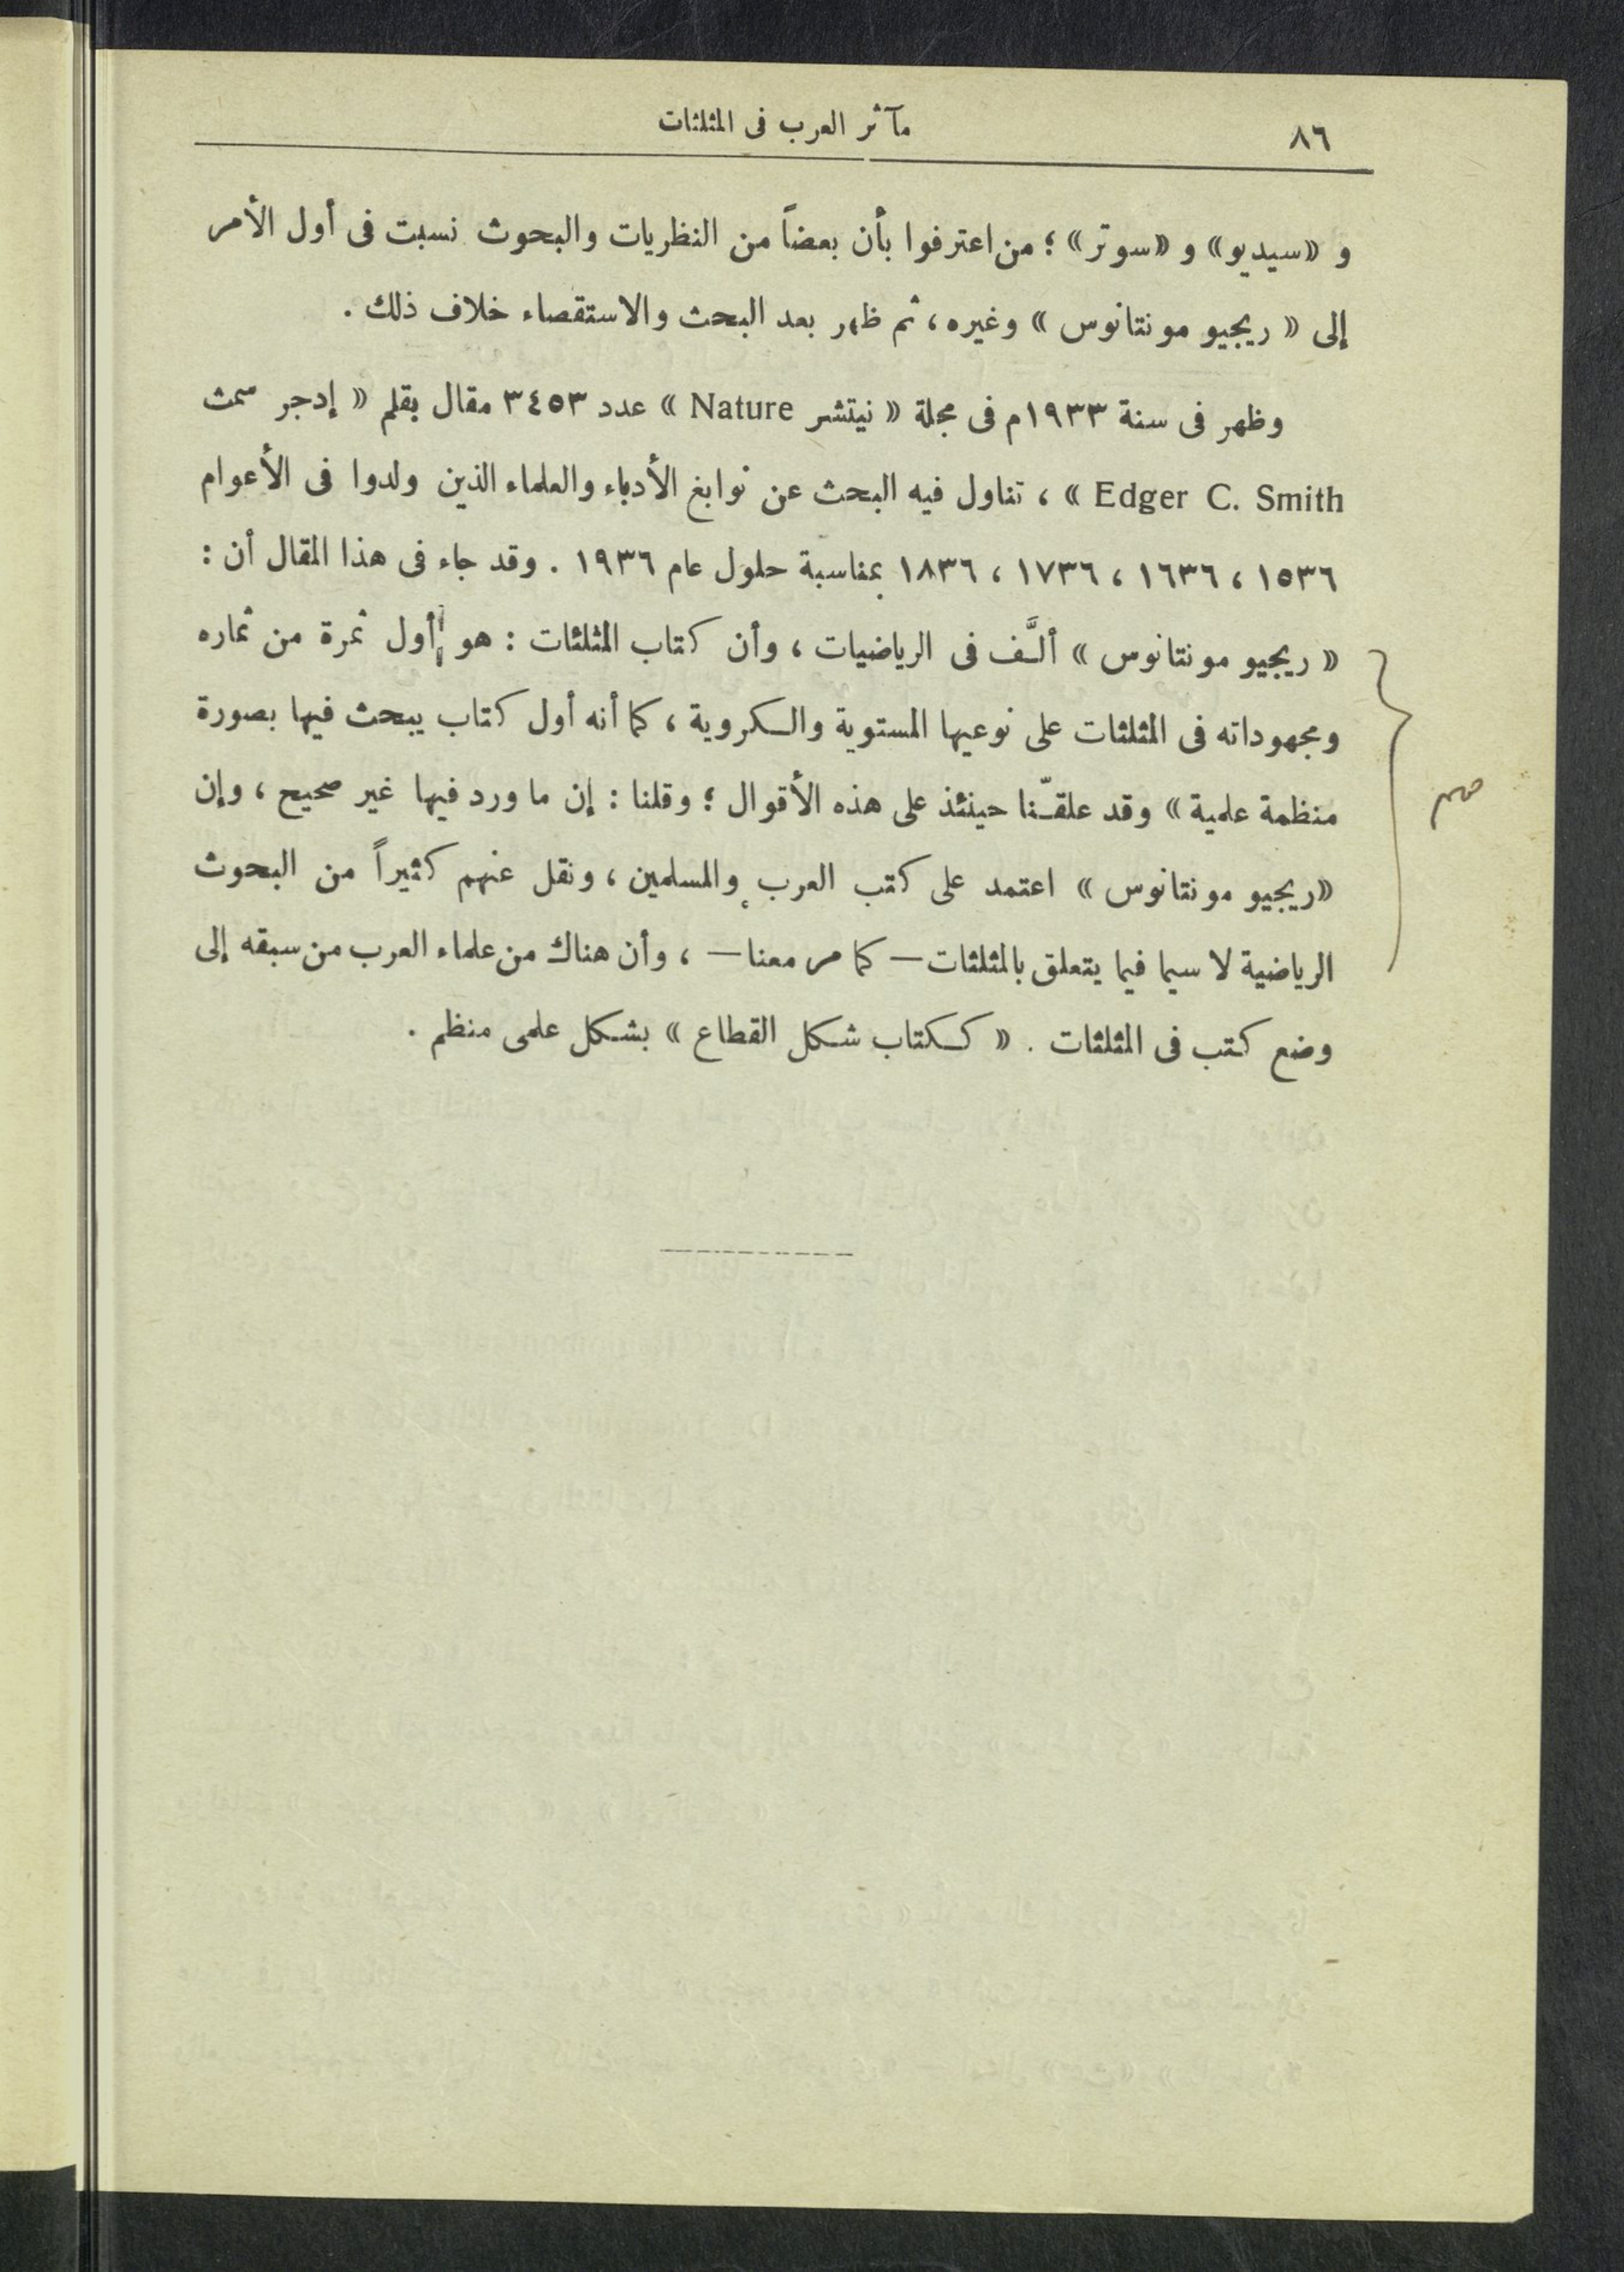 ٨٦
مآثر العرب فى المثلثات
و «سيديو» و «سوتر» ؛ من اعترفوا بأن بعضاً من النظريات والبحوث نسبت فى أول الأمر
إلى « ريجيو مونتانوس » وغيره ، ثم ظهر بعد البحث والاستقصاء خلاف ذلك .
وظهر فى سنة ١٩٣٣م فى مجلة « نيتشر Nature » عدد ٣٤٥٣ مقال بقلم « إدجر سمث
Edger C. Smith » ، تناول فيه البحث عن نوابغ الأدباء والعلماء الذين ولدوا فى الأعوام
١٥٣٦ ، ١٦٣٦ ، ١٧٣٦ ، ١٨٣٦ بمناسبة حلول عام ١٩٣٦ . وقد جاء فى هذا المقال أن :
« ريجيو مونتانوس » ألَّف فى الرياضيات ، وأن كتاب المثلثات : هو أول ثمرة من ثماره
ومجهوداته فى المثلثات على نوعيها المستوية والكروية ، كما أنه أول كتاب يبحث فيها بصورة
منظمة علمية » وقد علقنّا حينئذ على هذه الأقوال ؛ وقلنا : إن ما ورد فيها غير صحيح ، وإن
«ريجيو مونتانوس » اعتمد على كتب العرب والمسلمين ، ونقل عنهم كثيراً من البحوث
الرياضية لا سيما فيما يتعلق بالمثلثات — كما مر معنا — ، وأن هناك من علماء العرب من سبقه إلى
وضع كتب فى المثلثات . « ككتاب شكل القطاع » بشكل علمى منظم .
مهم